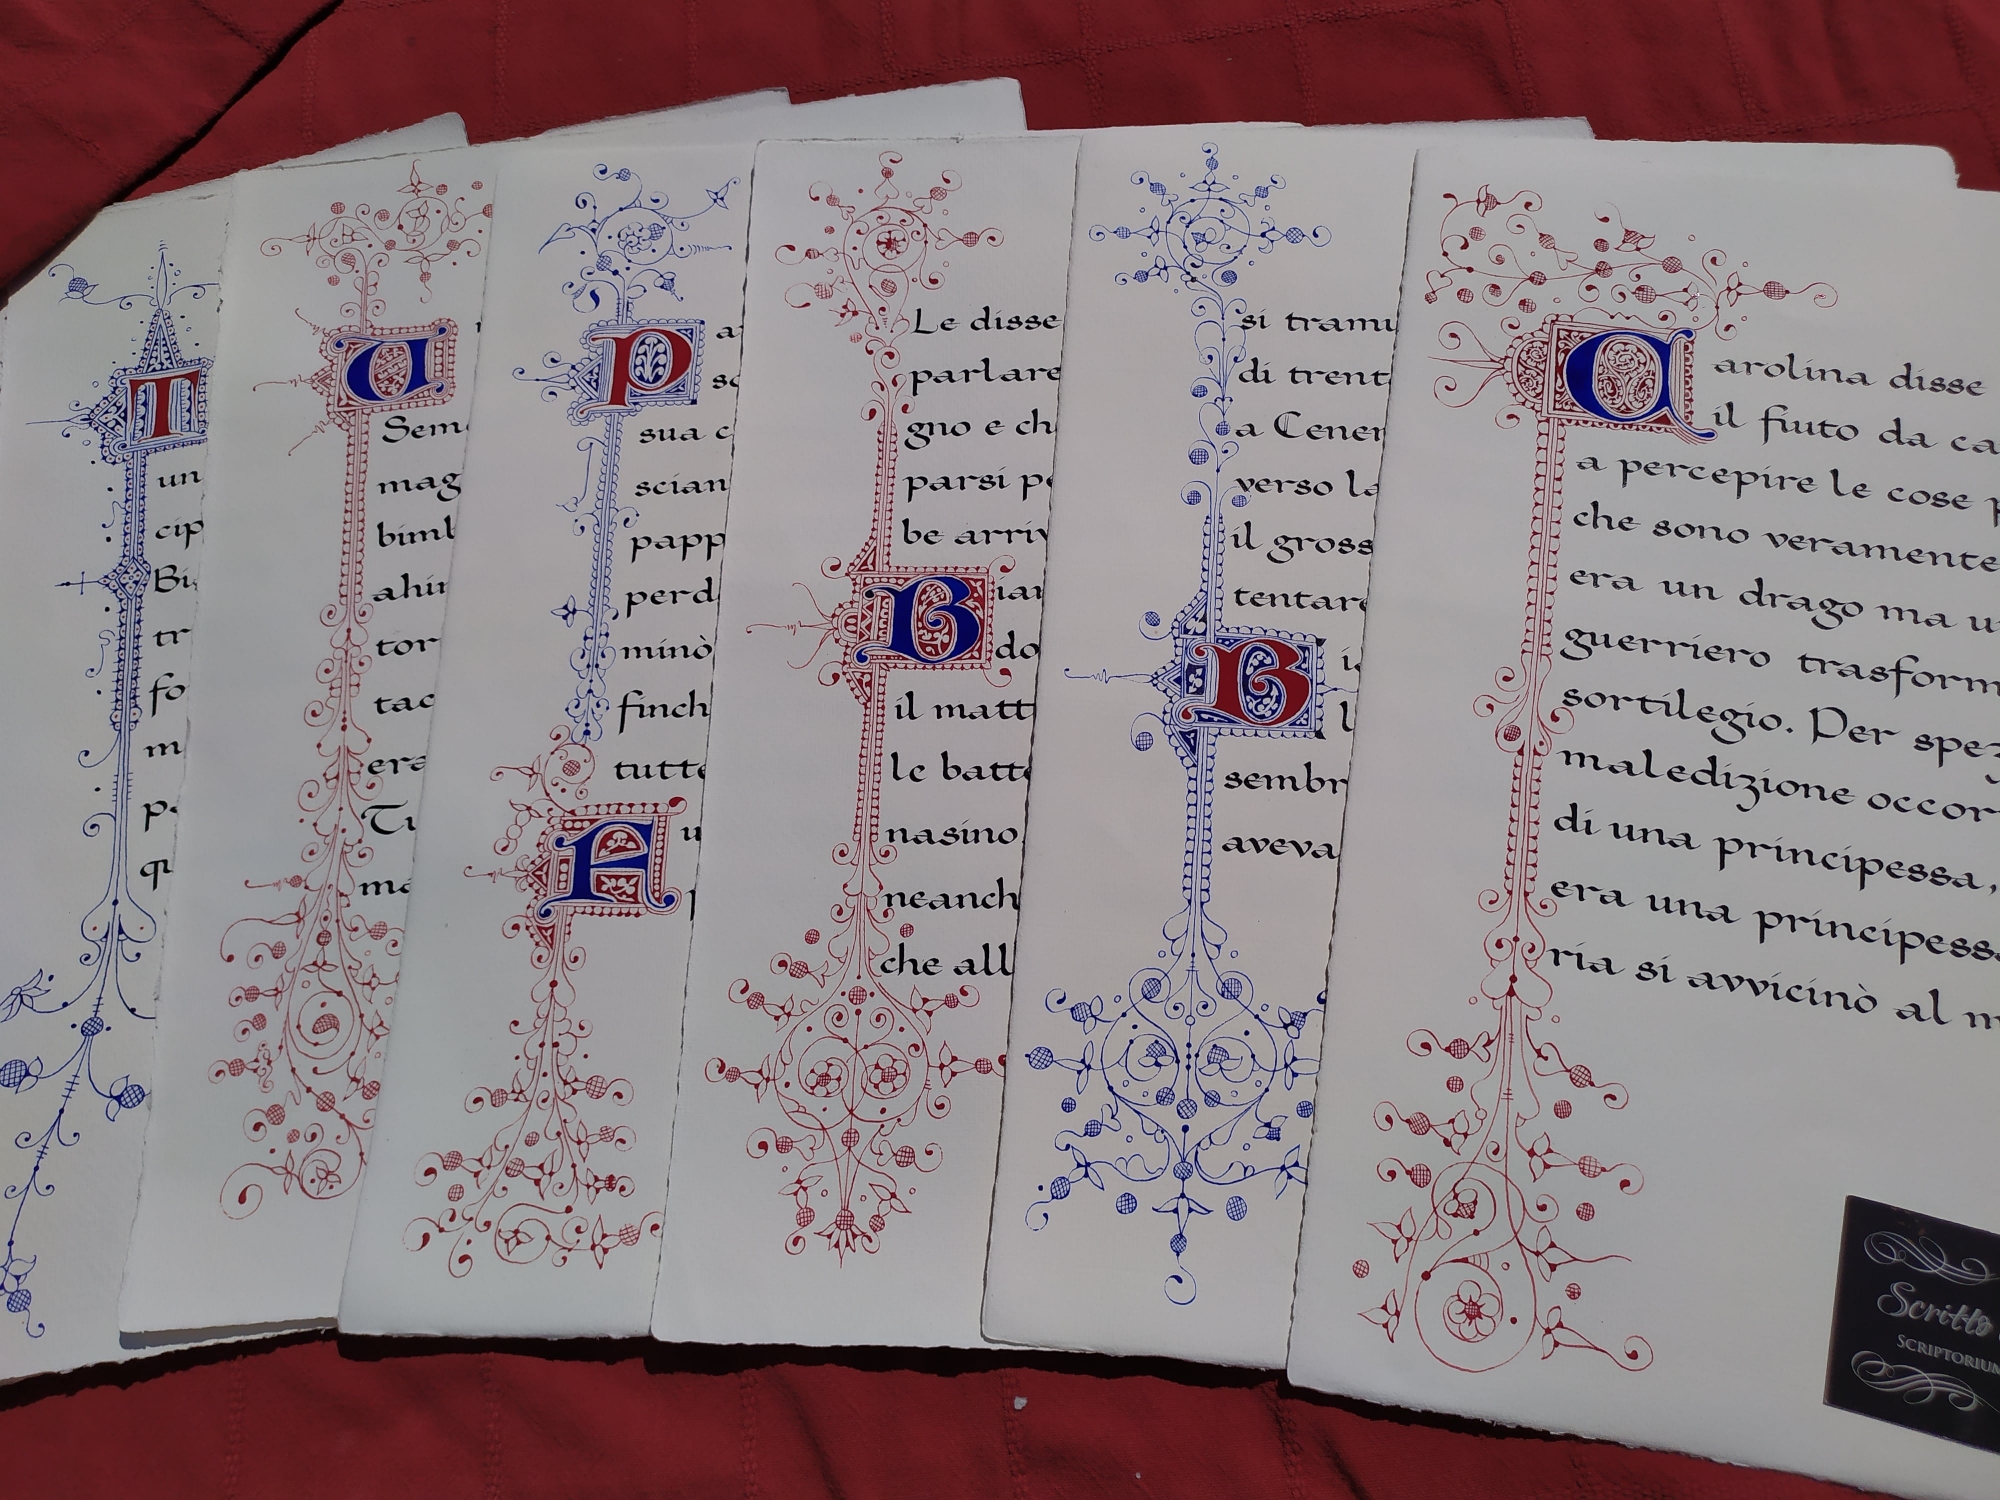 I
un
cip
Bi
tr
fo
m
p
q
U
Sem
mag
bimb
ahin
tor
tac
era
Tu
ma
P
a
sc
sua c
scian
papp
perd
minò
finch
tutte
E
u
p
Le disse
parlare
gno e ch
parsi pe
be arriv
Bian
do
il matt
le batte
nasino,
neanch
che all
si tramu
di trent
a Cener
verso la
il gross
tentare
B
l
sembr
aveva
Carolina disse
il fiuto da ca
a percepire le cose p
che sono veramente
era un drago ma u
guerriero trasform
sortilegio. Per spez
maledizione occor
di una principessa,
era una principess
ria si avvicinò al m
Scritto
SCRIPTORIUM